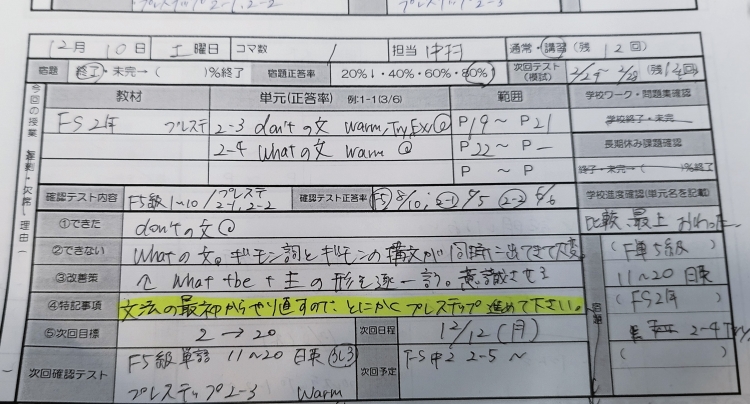 プレステップ2-1,2-2
12月 10日 土曜日 コマ数 1 担当 中村 通常・講習(残 12回)
宿題 終了・未完→( )%終了 宿題正答率 20%↓・40%・60%・80% 次回テスト(模試) 2/27～2/28 (残 回)
今回の授業 遅刻・欠席(理由 )
教材 単元(正答率) 例:1-1(3/6) 範囲 学校ワーク・問題集確認
FS2年 プレステ 2-3 don'tの文 Warm, Try, Ex P19～P21 学校終了・未完
2-4 whatの文 Warm P22～P 長期休み課題確認
P ～ P 終了・未完→( )%終了
確認テスト内容 F5級1～10/プレステ2-1,2-2 確認テスト正答率 F5 8/10; 2-1 5/5 2-2 6/6 学校進度確認(単元名を記載)
①できた don'tの文 比較、最上 おわった
②できない Whatの文。ギモン詞とギモンの構文が同時に出てきて大変。
③改善策 ↑ What+be+主の形を逐一言う。意識させる
④特記事項 文法の最初からやり直すので、とにかくプレステップ進めて下さい。
⑤次回目標 2→20 次回日程 12/12(月)
次回確認テスト F5級単語 11～20 日英 次回予定 FS中2 2-5～
プレステップ2-3 Warm
宿題
(F単5級 )
11～20 日英
(FS2年 )
2-4 Try
( )